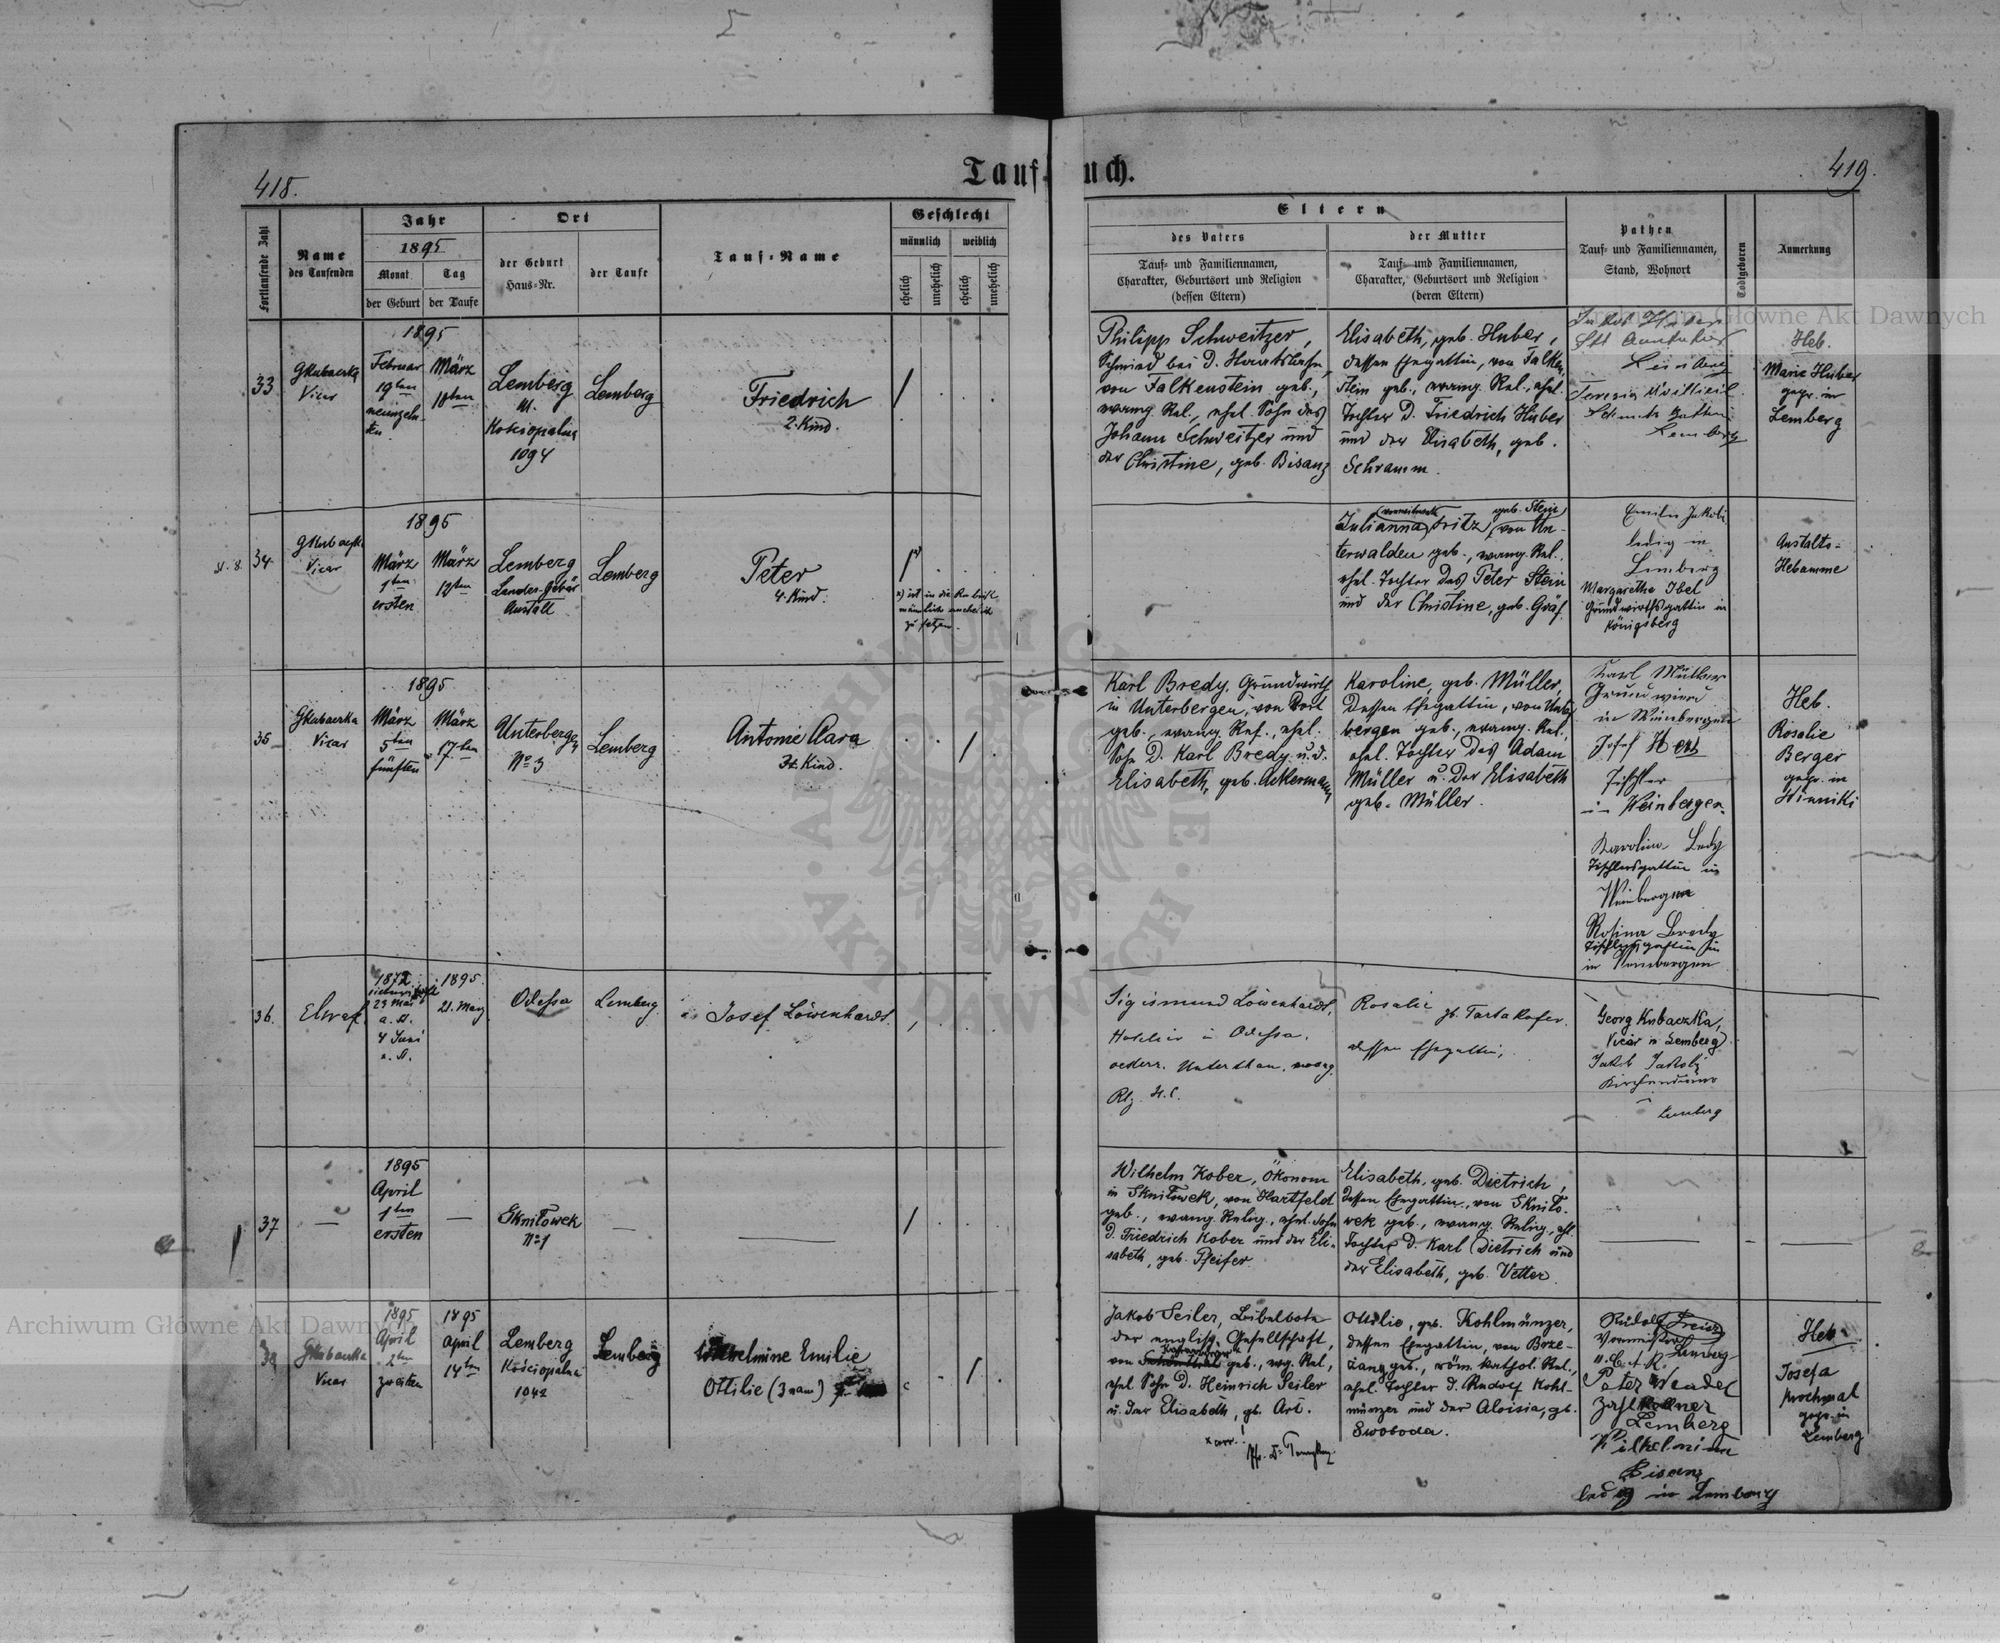 418.
Taufbuch.
419.
Fortlaufende Zahl
Name
des Taufenden
Jahr
1895
Monat
Tag
der Geburt
der Taufe
Ort
der Geburt
Haus=Nr.
der Taufe
Tauf=Name
Geschlecht
männlich
weiblich
ehelich
unehelich
ehelich
unehelich
Eltern
des Vaters
Tauf= und Familiennamen,
Charakter, Geburtsort und Religion
(dessen Eltern)
der Mutter
Tauf= und Familiennamen,
Charakter, Geburtsort und Religion
(deren Eltern)
Pathen
Tauf= und Familiennamen,
Stand, Wohnort
Todtgeboren
Anmerkung
33
GKubaczka
Vicar
1895
Februar
19ten
neunzehn-
ten
März
10ten
Lemberg
Kościopalna
1094
Lemberg
Friedrich
2. Kind.
Philipp Schweitzer,
Schmied bei D.
von Falkenstein geb.,
evang. Rel., ehel. Sohn des
Johann Schweitzer und
der Christine, geb. Bisanz
Elisabeth, geb. Huber,
dessen Ehegattin, von Falken-
stein geb., evang. Rel., ehel.
Tochter D. Friedrich Huber
und der Elisabeth, geb.
Schramm.
Jakob Huber
Lemberg
Lemberg
Heb.
Marie Huber
gepr. in
Lemberg
34
GKubaczka
Vicar
1895
März
1ten
ersten
März
12ten
Lemberg
Landes-Gebär
Anstalt
Lemberg
Peter
4. Kind.
x) ist in die Rubrik
männlich unehelich
zu setzen.
Julianna Fritz, geb. Stein, von Un-
terwalden geb., evang. Rel.
ehel. Tochter des Peter Stein
und der Christine, geb. Gräf.
Emilie Jakobi
ledig in
Lemberg
Margarethe Ibel
Grundwirthsgattin in
Königsberg
Anstalts-
Hebamme
35
GKubaczka
Vicar
1895
März
5ten
fünften
März
17ten
Unterbergen
No 3
Lemberg
Antonie Clara
3t. Kind.
Karl Bredy, Grundwirth
in Unterbergen, von Dort
geb., evang. Rel., ehel.
Sohn D. Karl Bredy u. d.
Elisabeth, geb. Ackermann,
Karoline, geb. Müller,
Dessen Ehegattin, von Unter-
bergen geb., evang. Rel.,
ehel. Tochter des Adam
Müller u. Der Elisabeth
geb. Müller.
Karl Müller
in Weinbergen
Josef
Tischler
in Weinbergen
Karolina
Tischlersgattin in
Weinbergen
Rosina Bredy
in Weinbergen
Heb.
Rosalie
Berger
gepr. in
Winniki
36.
23 Mai
a. St.
4 Juni
n. St.
1895.
21. März
Odessa
Lemberg.
Josef Löwenhardt.
Sigismund Löwenhardt,
Hotelier in Odessa,
oesterr. Unterthan, evang.
Rlg. H. C.
Rosalie gb. Tartakofer.
dessen Ehegattin,
Georg Kubaczka,
Vicar in Lemberg
Jakob Jakobi
Kirchendiener
Lemberg
37
1895
April
1ten
ersten
Skniłowek
No 1
Wilhelm Kober, Ökonom
in Skniłowek, von Hartfeld
geb., evang. Relig., ehel. Sohn
D. Friedrich Kober und der Eli-
sabeth, geb. Pfeifer
Elisabeth, geb. Dietrich,
dessen Ehegattin, von Skniło-
wek geb., evang. Relig., ehl.
Tochter D. Karl Dietrich und
der Elisabeth, geb. Vetter.
38
GKubaczka
Vicar
1895
April
2ten
zweiten
1895
April
14ten
Lemberg
Kościopalna
1042
Lemberg
Wilhelmine Emilie
Ottilie (3 nam)
Jakob Seiler, Bibelbote
der englisch. Gesellschaft,
von geb., evg. Rel.,
ehel. Sohn D. Heinrich Seiler
u. der Elisabeth, gb. Art.
Ottilie, geb. Kohlmünzer,
dessen Ehegattin, von Brze-
żany geb., röm. kathol. Rel.,
ehel. Tochter d. Rudolf Kohl-
münzer und der Aloisia, gb.
Swoboda.
Rudolf
Lemberg
Peter Wendel
Zahlkellner
Lemberg
Wilhelmine
Bisanz
ledig in Lemberg
Heb.
Josefa
Krochmal
gepr. in
Lemberg
Archiwum Główne Akt Dawnych
Archiwum Główne Akt Dawnych